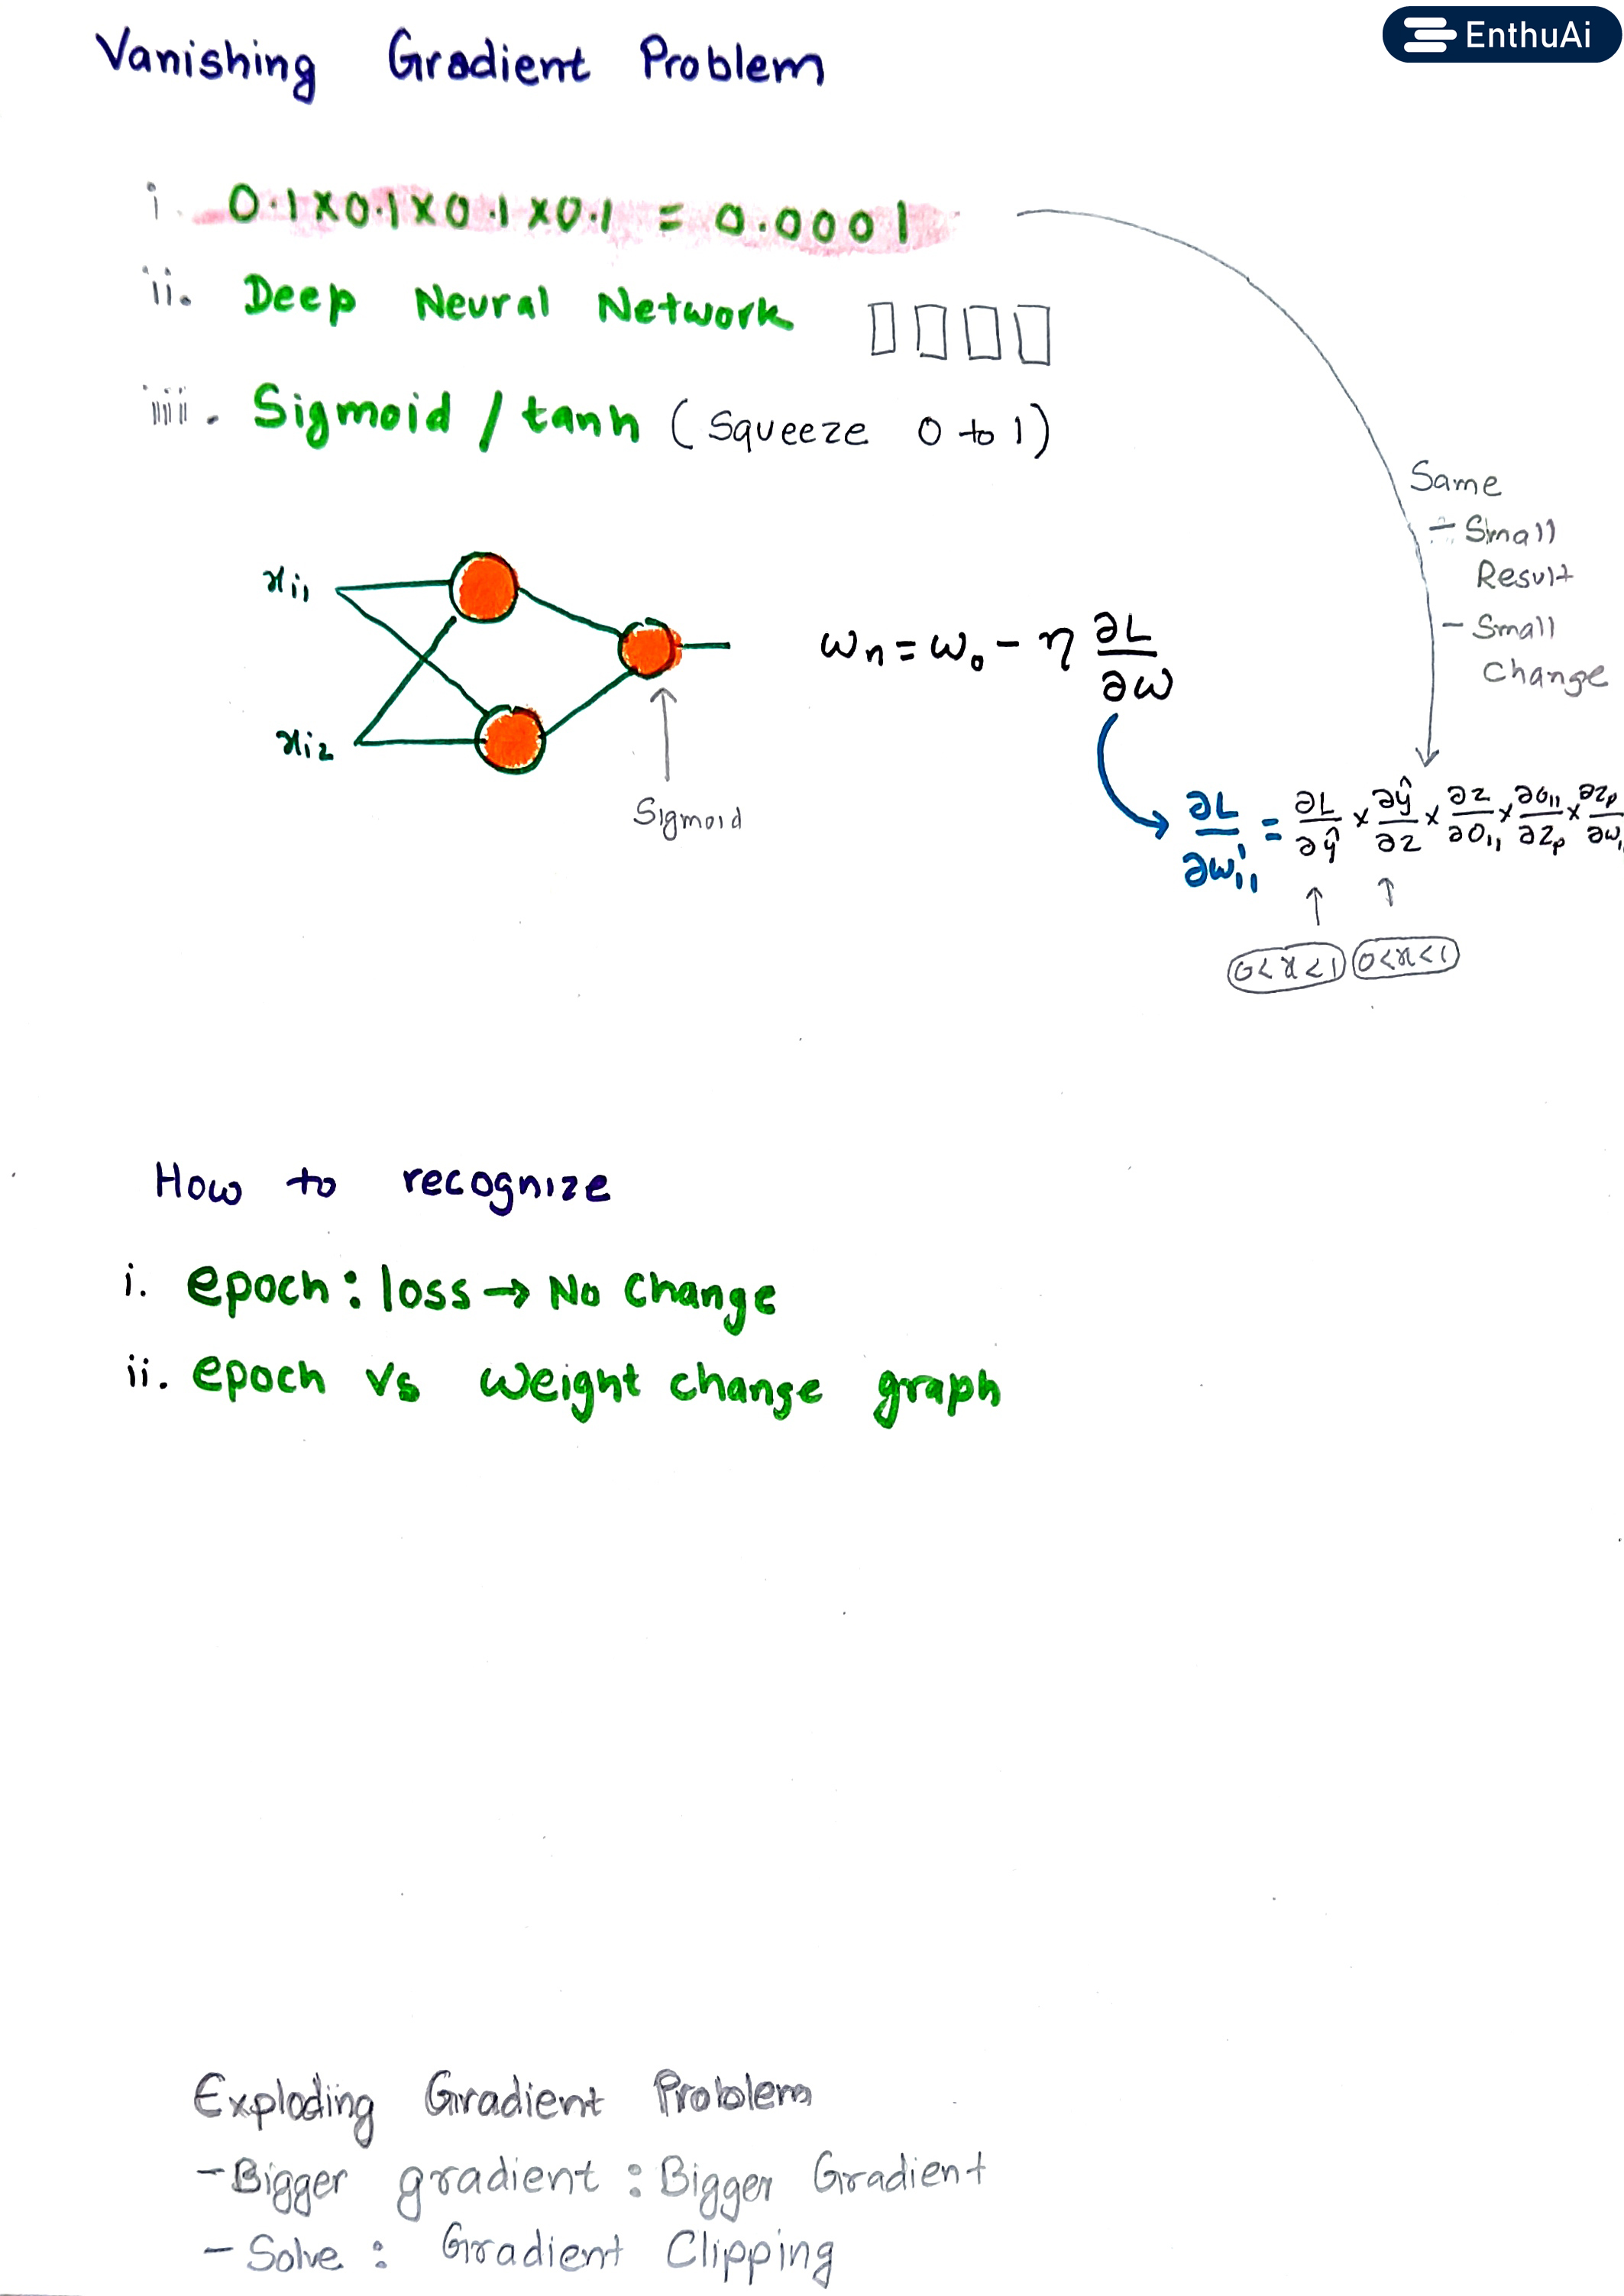 EnthuAi
Vanishing Gradient Problem
i. 0.1×0.1×0.1×0.1 = 0.0001
ii. Deep Neural Network
iii. Sigmoid / tanh (Squeeze 0 to 1)
Same
- Small
Result
- Small
change
xi1
xi2
Sigmoid
wn = wo - η ∂L/∂w
∂L/∂w¹11 = ∂L/∂ŷ × ∂ŷ/∂z × ∂z/∂O11 × ∂O11/∂zp × ∂zp/∂w1
0<x<1 0<x<1
How to recognize
i. epoch : loss → No Change
ii. epoch Vs Weight change graph
Exploding Gradient Problem
- Bigger gradient : Bigger Gradient
- Solve : Gradient Clipping